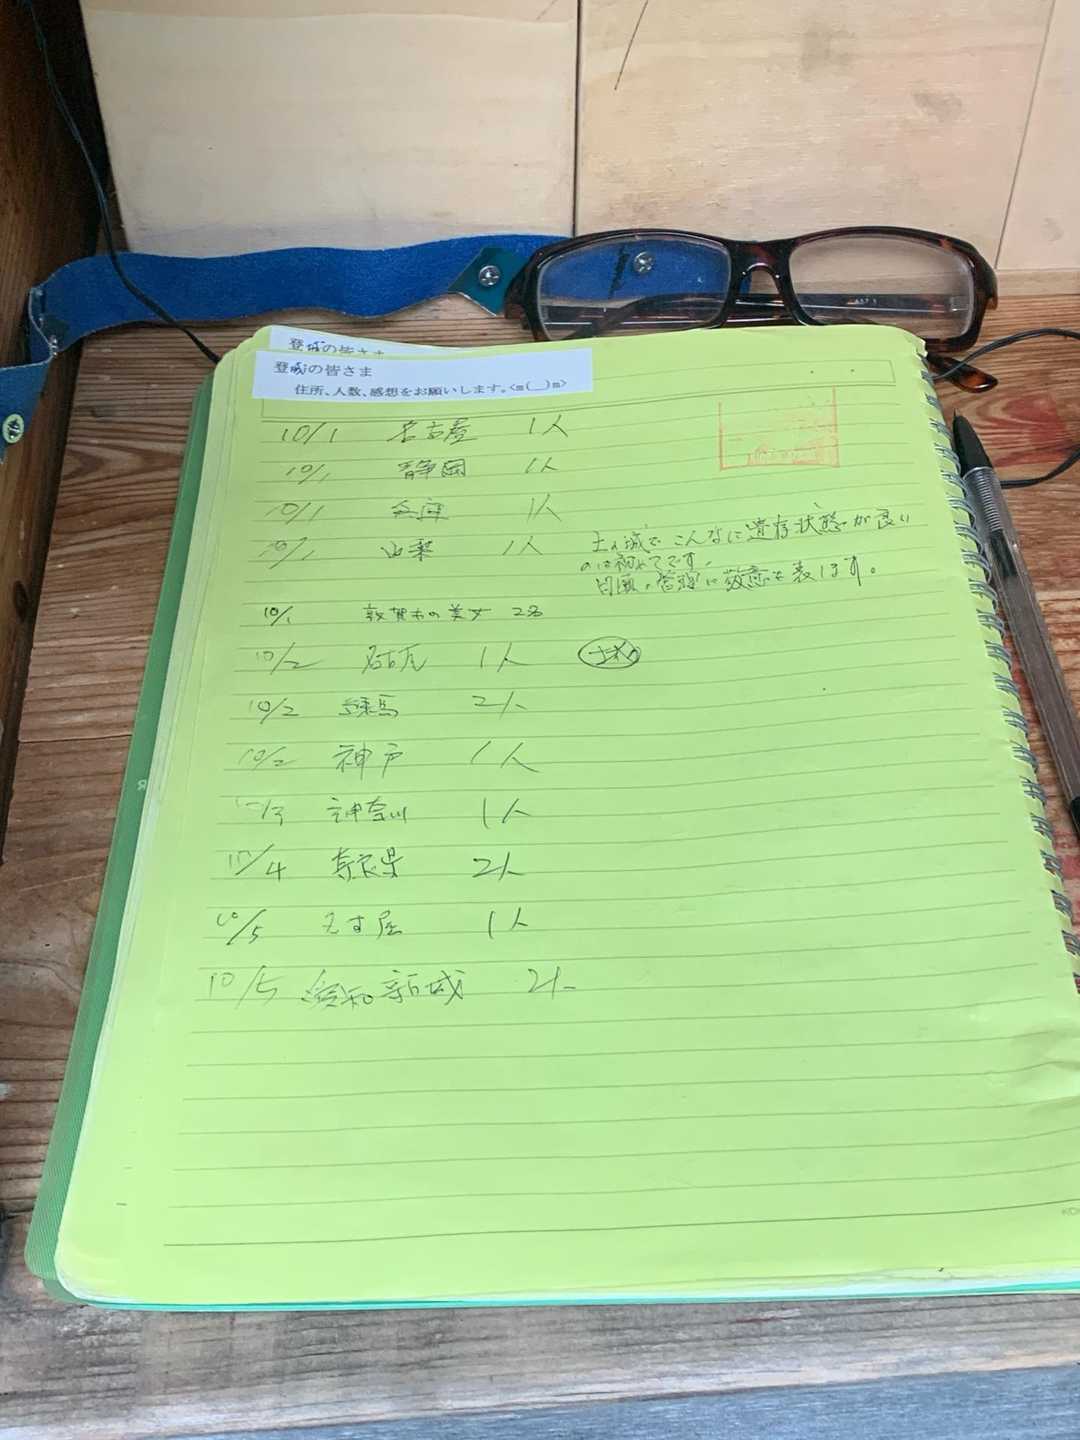 登城の皆さま
登城の皆さま
住所、人数、感想をお願いします。<m(__)m>
10/1 名古屋 1人
10/1 静岡 1人
10/1 兵庫 1人
10/1 山梨 1人 土の城でこんなに遺存状態が良い
のは初めてです。
日頃の管理に敬意を表します。
10/1 敦賀市の美女 2名
10/2 名古屋 1人
10/2 練馬 2人
10/2 神戸 1人
10/3 神奈川 1人
10/4 奈良県 2人
10/5 名古屋 1人
10/5 愛知新城 2人